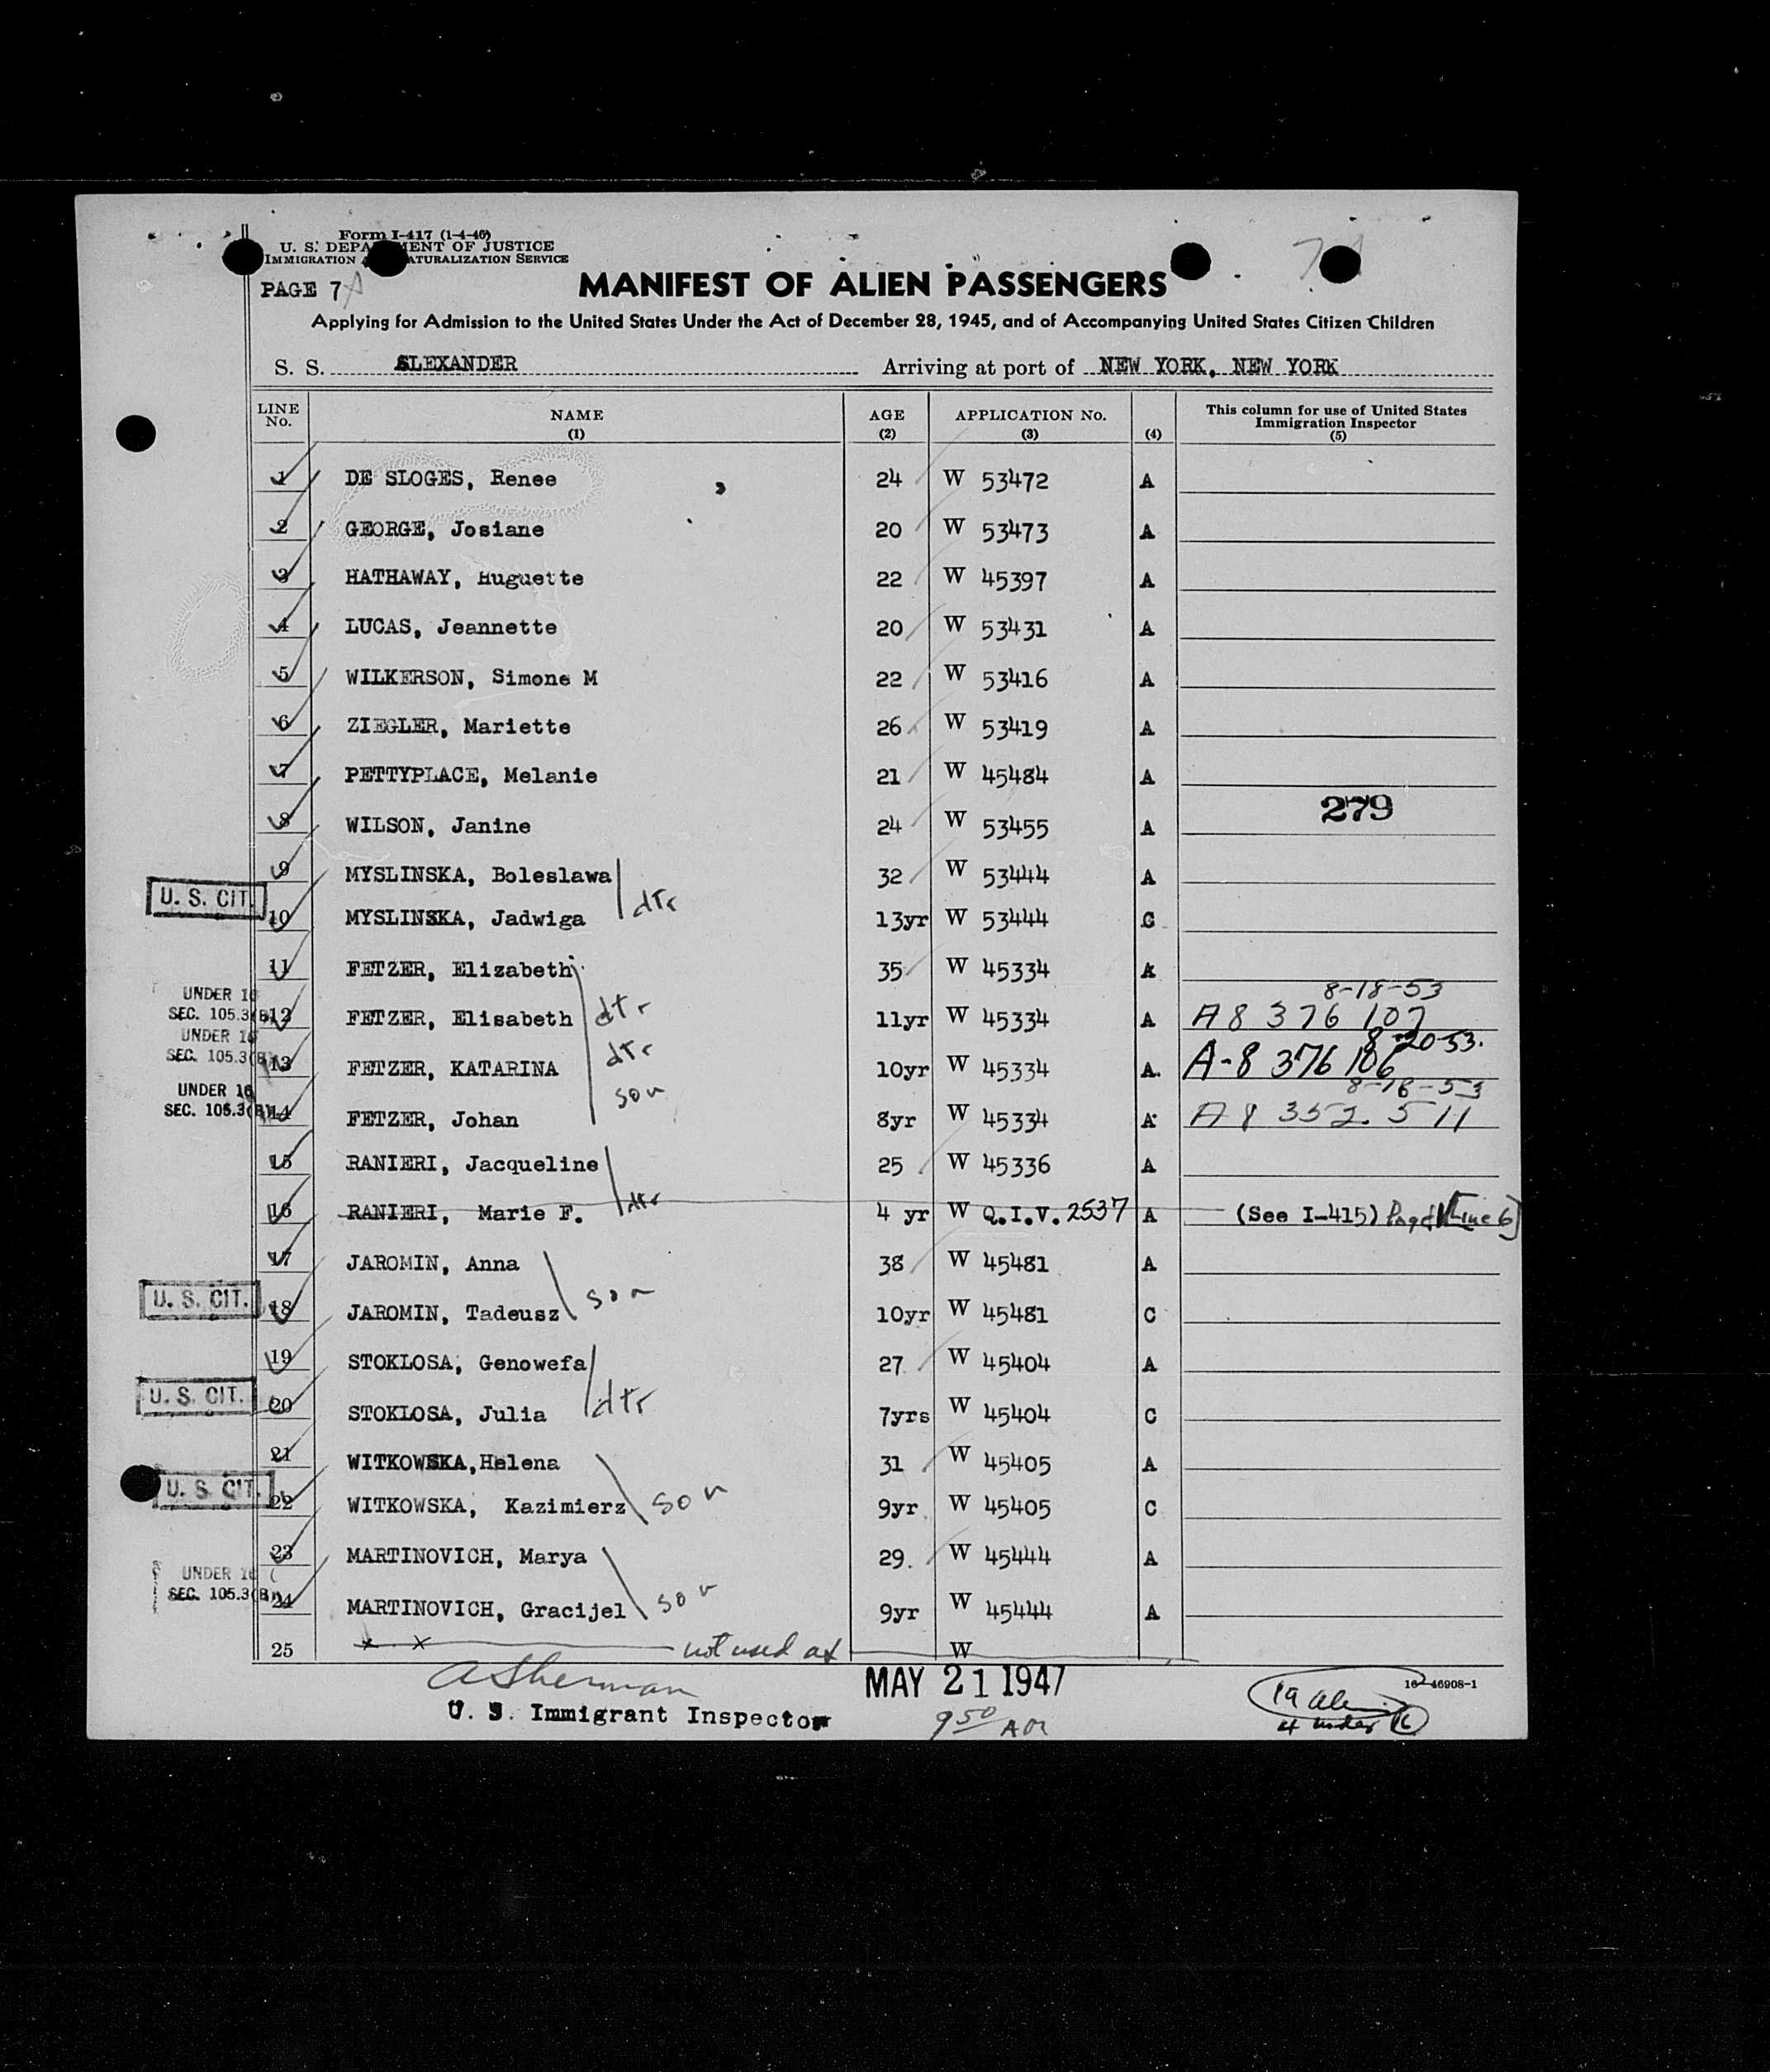 Form I-417 (1-4-46)
U. S. DEPARTMENT OF JUSTICE
IMMIGRATION NATURALIZATION SERVICE
PAGE 7A
MANIFEST OF ALIEN PASSENGERS
Applying for Admission to the United States Under the Act of December 28, 1945, and of Accompanying United States Citizen Children
S. S. ALEXANDER Arriving at port of NEW YORK, NEW YORK
LINE No. NAME (1) AGE (2) APPLICATION No. (3) (4) This column for use of United States Immigration Inspector (5)
1 DE SLOGES, Renee 24 W 53472 A
2 GEORGE, Josiane 20 W 53473 A
3 HATHAWAY, Huguette 22 W 45397 A
4 LUCAS, Jeannette 20 W 53431 A
5 WILKERSON, Simone M 22 W 53416 A
6 ZIEGLER, Mariette 26 W 53419 A
7 PETTYPLACE, Melanie 21 W 45484 A
279
8 WILSON, Janine 24 W 53455 A
9 MYSLINSKA, Boleslawa 32 W 53444 A
U. S. CIT. 10 MYSLINSKA, Jadwiga dtr 13yr W 53444 C
11 FETZER, Elizabeth 35 W 45334 A
UNDER 16 SEC. 105.3(B) 12 FETZER, Elisabeth dtr 11yr W 45334 A 8-18-53 A8 376 107
UNDER 16 SEC. 105.3(B) 13 FETZER, KATARINA dtr 10yr W 45334 A. 8-20-53. A-8 376 106
UNDER 16 SEC. 105.3(B) 14 FETZER, Johan son 8yr W 45334 A 8-18-53 A8 352. 511
15 RANIERI, Jacqueline 25 W 45336 A
16 RANIERI, Marie F. dtr 4 yr W Q.I.V. 2537 A (See I-415) Page Line 6
17 JAROMIN, Anna 38 W 45481 A
U. S. CIT. 18 JAROMIN, Tadeusz son 10yr W 45481 C
19 STOKLOSA, Genowefa 27 W 45404 A
U. S. CIT. 20 STOKLOSA, Julia dtr 7yrs W 45404 C
21 WITKOWSKA,Helena 31 W 45405 A
U. S. CIT. 22 WITKOWSKA, Kazimierz son 9yr W 45405 C
23 MARTINOVICH, Marya 29. W 45444 A
UNDER 16 SEC. 105.3(B) 24 MARTINOVICH, Gracijel son 9yr W 45444 A
25 x x not used as W
ASherman MAY 21 1947 16-46908-1
U. S. Immigrant Inspector 9 50 AM 19
4 under 16